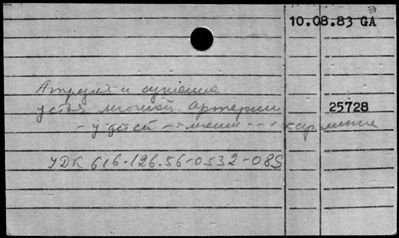 10.08.83 GA
Атрезия и сужение
устья легочной артерии
25728
- у детей - лечение
УДК 616.126.56-0532-085